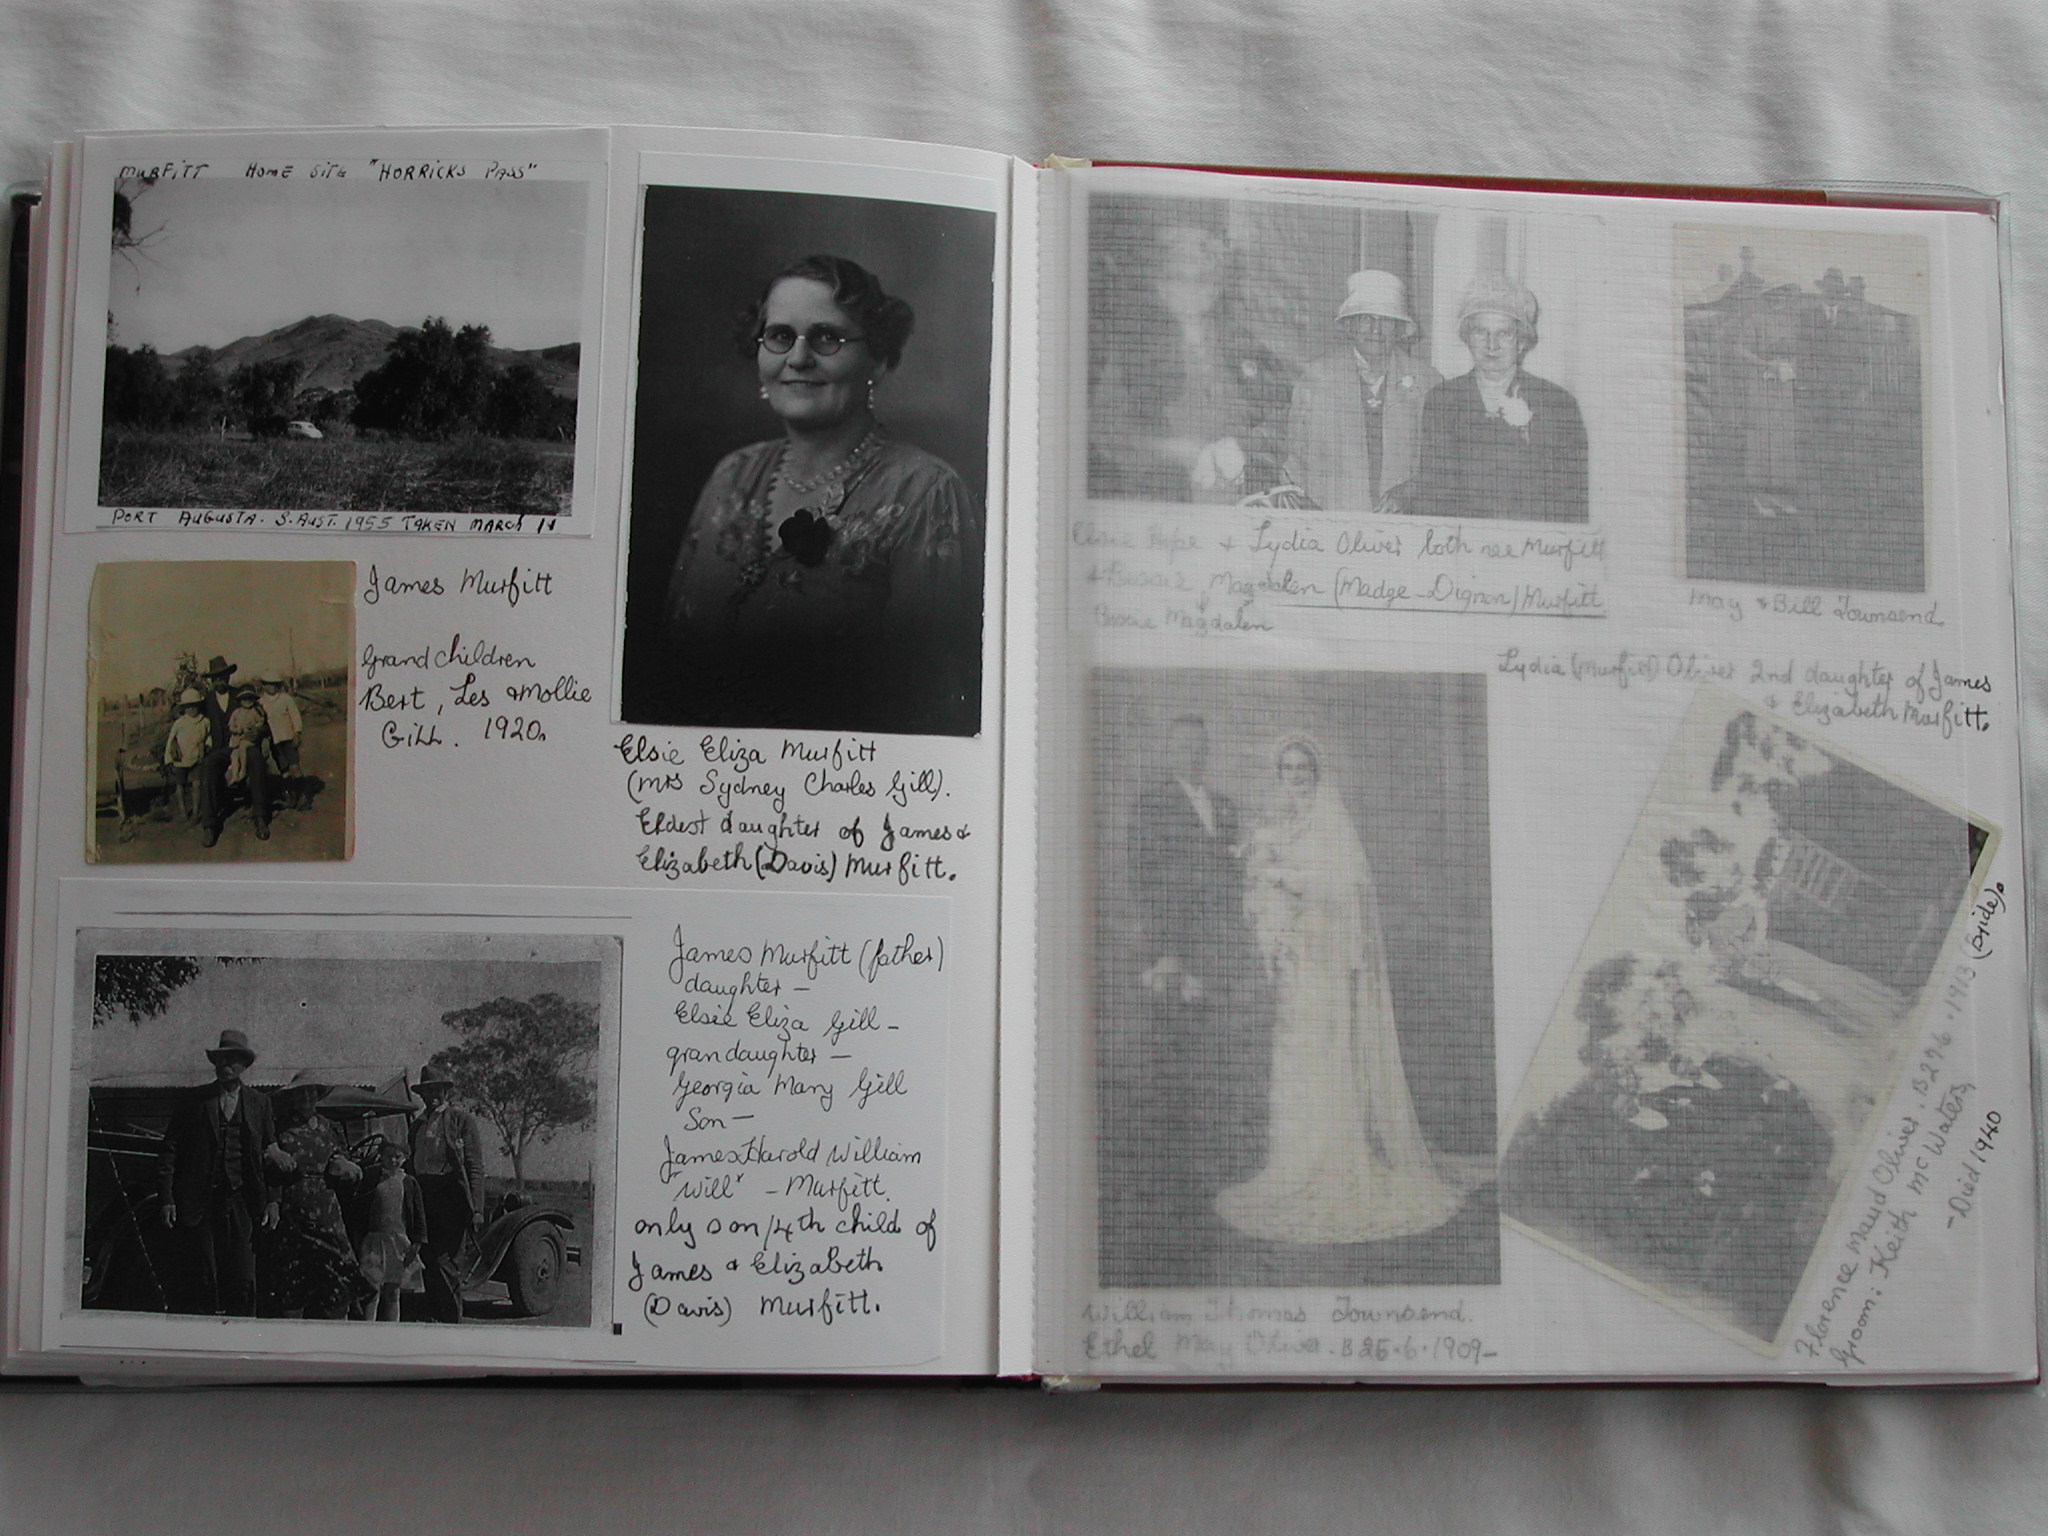 MURFITT HOME SITE "HORRICKS PASS"
PORT AUGUSTA. S. AUST. 1955 TAKEN MARCH
James Murfitt
Grandchildren
Bert, Les & Mollie
Gill. 1920.
Elsie Eliza Murfitt
(Mrs Sydney Charles Gill).
Eldest daughter of James &
Elizabeth (Davis) Murfitt.
James Murfitt (father)
daughter –
Elsie Eliza Gill –
grandaughter –
Georgia Mary Gill
Son –
James Harold William
"Will" – Murfitt.
only son/4th child of
James & Elizabeth
(Davis) Murfitt.
+ Lydia Oliver both nee Murfitt
Magdalen (Madge-Dignon) Murfitt
Magdalen
May & Bill Townsend.
Lydia (Murfitt) Oliver 2nd daughter of James
& Elizabeth Murfitt.
William Thomas Townsend.
Ethel May Oliver. B 25.6.1909–
Florence Maud Oliver. B 27.6.1913 (Bride).
Groom: Keith McWaters,
–Died 1940